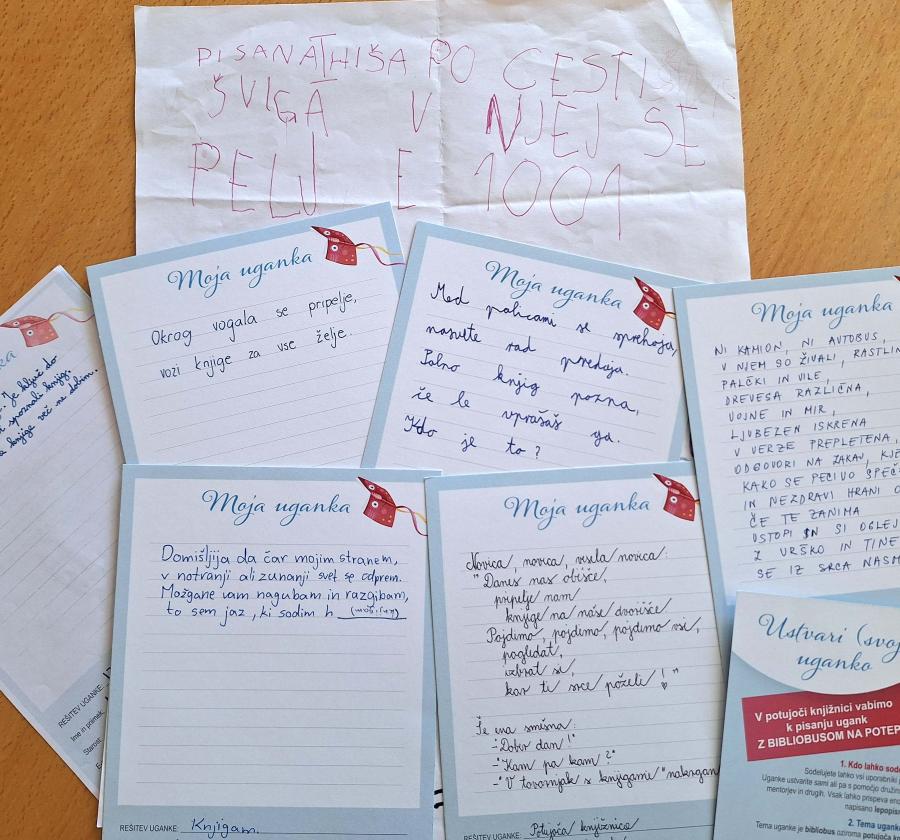 PISANA HIŠA PO CESTI
ŠVIGA V NJEJ SE
PELJE 1001
Je ključ do
spoznali knjig.
knjige več ne dobim.
REŠITEV UGANKE:
Ime in priimek
Starost
Moja uganka
Okrog vogala se pripelje,
vozi knjige za vse želje.
Moja uganka
Med policami se sprehaja,
nasvete rad predaja.
Polno knjig pozna,
če le vprašaš ga.
Kdo je to?
Moja uganka
NI KAMION, NI AVTOBUS,
V NJEM SO ŽIVALI, RASTLIN
PALČKI IN VILE,
DREVESA RAZLIČNA,
VOJNE IN MIR,
LJUBEZEN ISKRENA
V VERZE PREPLETENA,
ODGOVORI NA ZAKAJ, KJE
KAKO SE PECIVO SPEČ
IN NEZDRAVI HRANI O
ČE TE ZANIMA
VSTOPI IN SI OGLEJ
Z URŠKO IN TINE
SE IZ SRCA NASM
Moja uganka
Domišljija da čar mojim stranem,
v notranji ali zunanji svet se odprem.
Možgane vam nagubam in razgibam,
to sem jaz, ki sodim h
REŠITEV UGANKE: Knjigam.
Moja uganka
Novica, novica, vesela novica:
"Danes nas obišče,
pripelje nam
knjige na naše dvorišče
Pojdimo, pojdimo, pojdimo vsi,
pogledat,
izbrat si,
kar ti srce poželi!"
Še ena smešna:
-"Dober dan!"
-"Kam pa kam?"
-"V tovornjak s knjigami nakrcan
REŠITEV UGANKE: Potujoča knjižnica
Ustvari (svoj
uganko
V potujoči knjižnici vabimo
k pisanju ugank
Z BIBLIOBUSOM NA POTEP
1. Kdo lahko sode
Sodelujete lahko vsi uporabniki
Uganke ustvarite sami ali pa s pomočjo družin
mentorjev in drugih. Vsak lahko prispeva eno
napisano lepopis
2. Tema ugank
Tema uganke je bibliobus oziroma potujoča kn